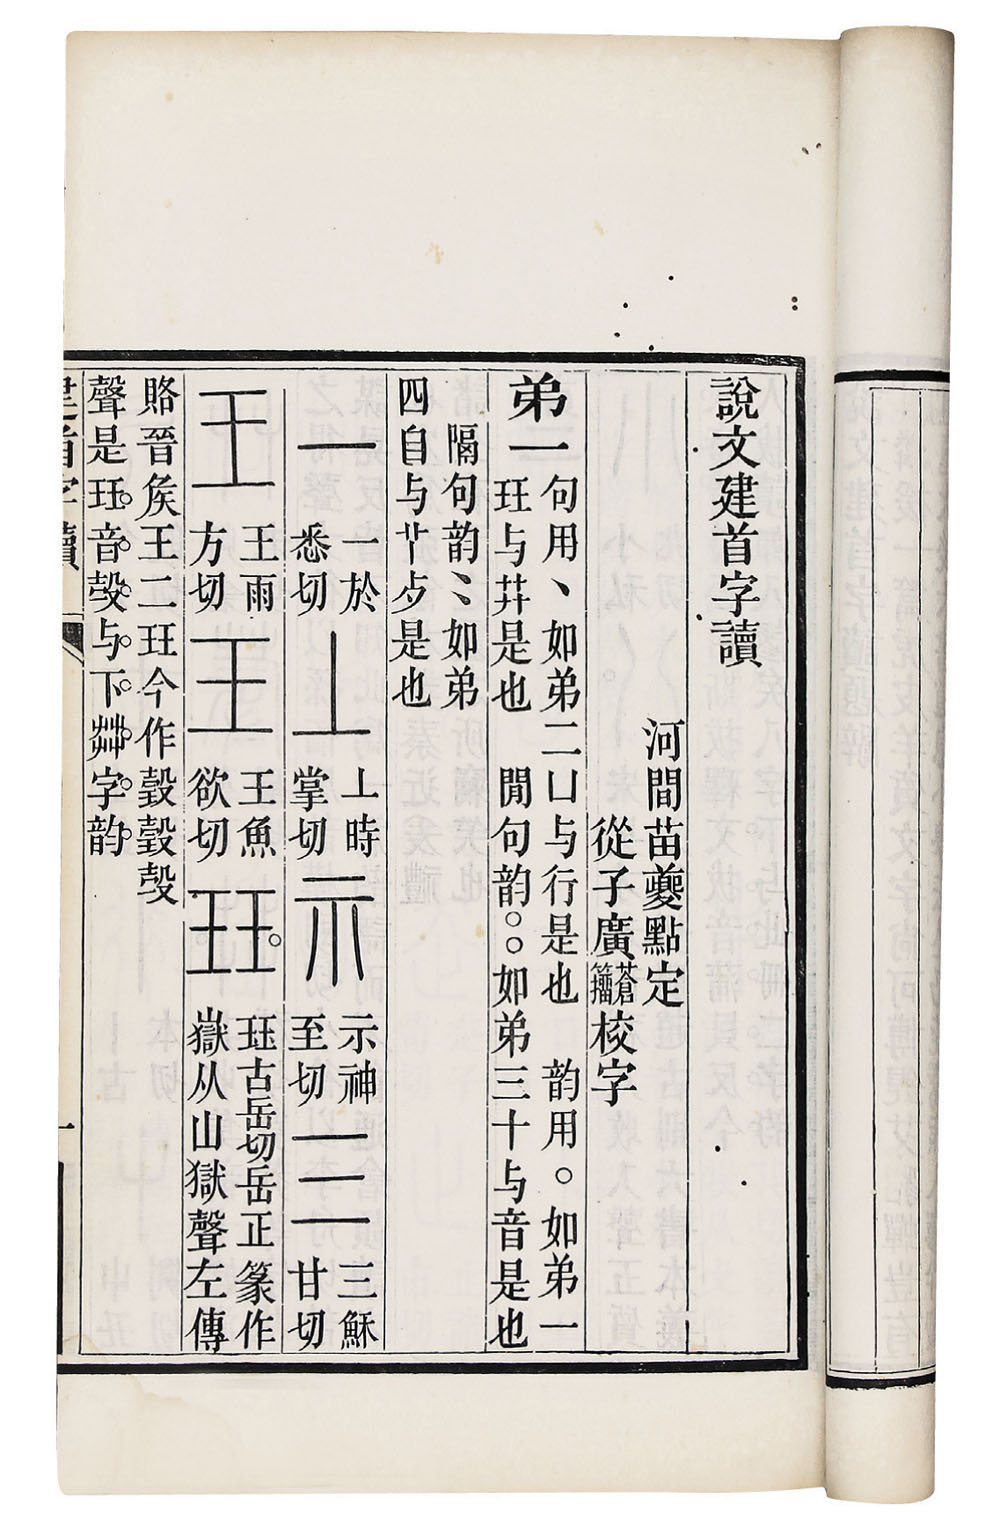 說文建首字讀
河間苗夔點定
從子廣蒼籀校字
弟一 句用丶如弟二凵与行是也 韵用。如弟一
玨与茻是也 閒句韵。。如弟三十与音是也
隔句韵〻如弟
四自与歺是也
一 一於悉切 丄 丄時掌切 示 示神至切 三 三穌甘切
王 王雨方切 王 王魚欲切 玨 玨古岳切岳正篆作嶽从山獄聲左傳
賂晉矦王二玨今作瑴瑴㱿
聲是玨音㱿与下茻字韵
建首字讀 一